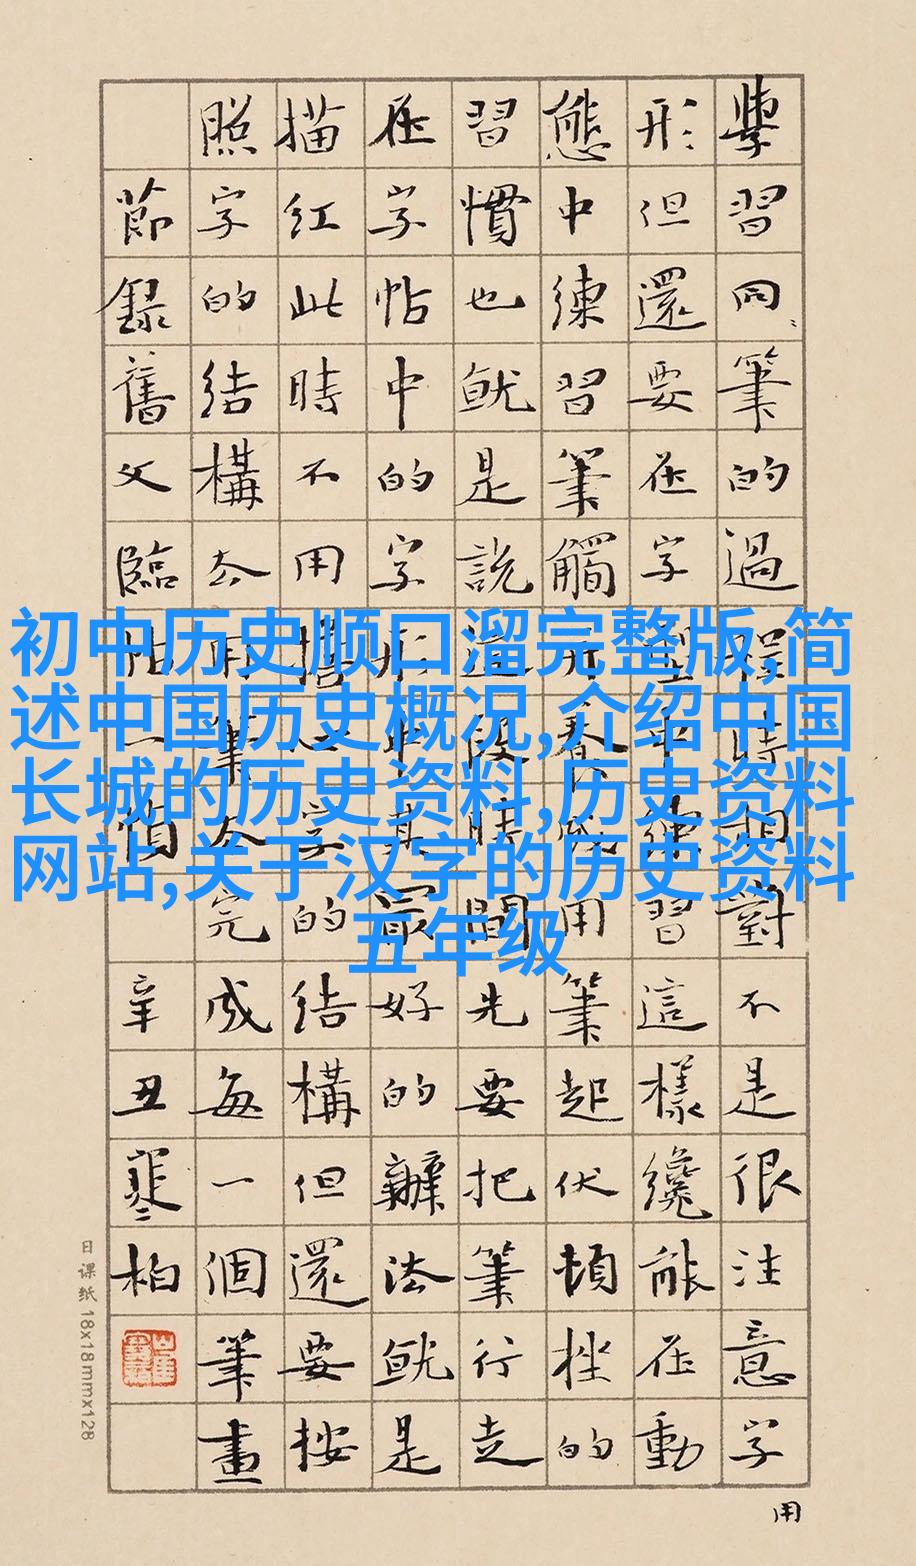 學習同筆的過程時相對不是很注意字
形但還要在字練習這樣纔能在動
態中練習筆觸養成用筆起伏頓挫的
習慣也就是說這段時間先要把筆行走
在字帖中的字形其最好的辦法就是
描紅此時不用擔心字的結構但還要按
照字的結構去用筆去完成每一個筆畫
節錄舊文臨帖一
辛丑寒柏
用
日课纸 18x18mmx128
初中历史顺口溜完整版,简
述中国历史概况,介绍中国
长城的历史资料,历史资料
网站,关于汉字的历史资料
五年级